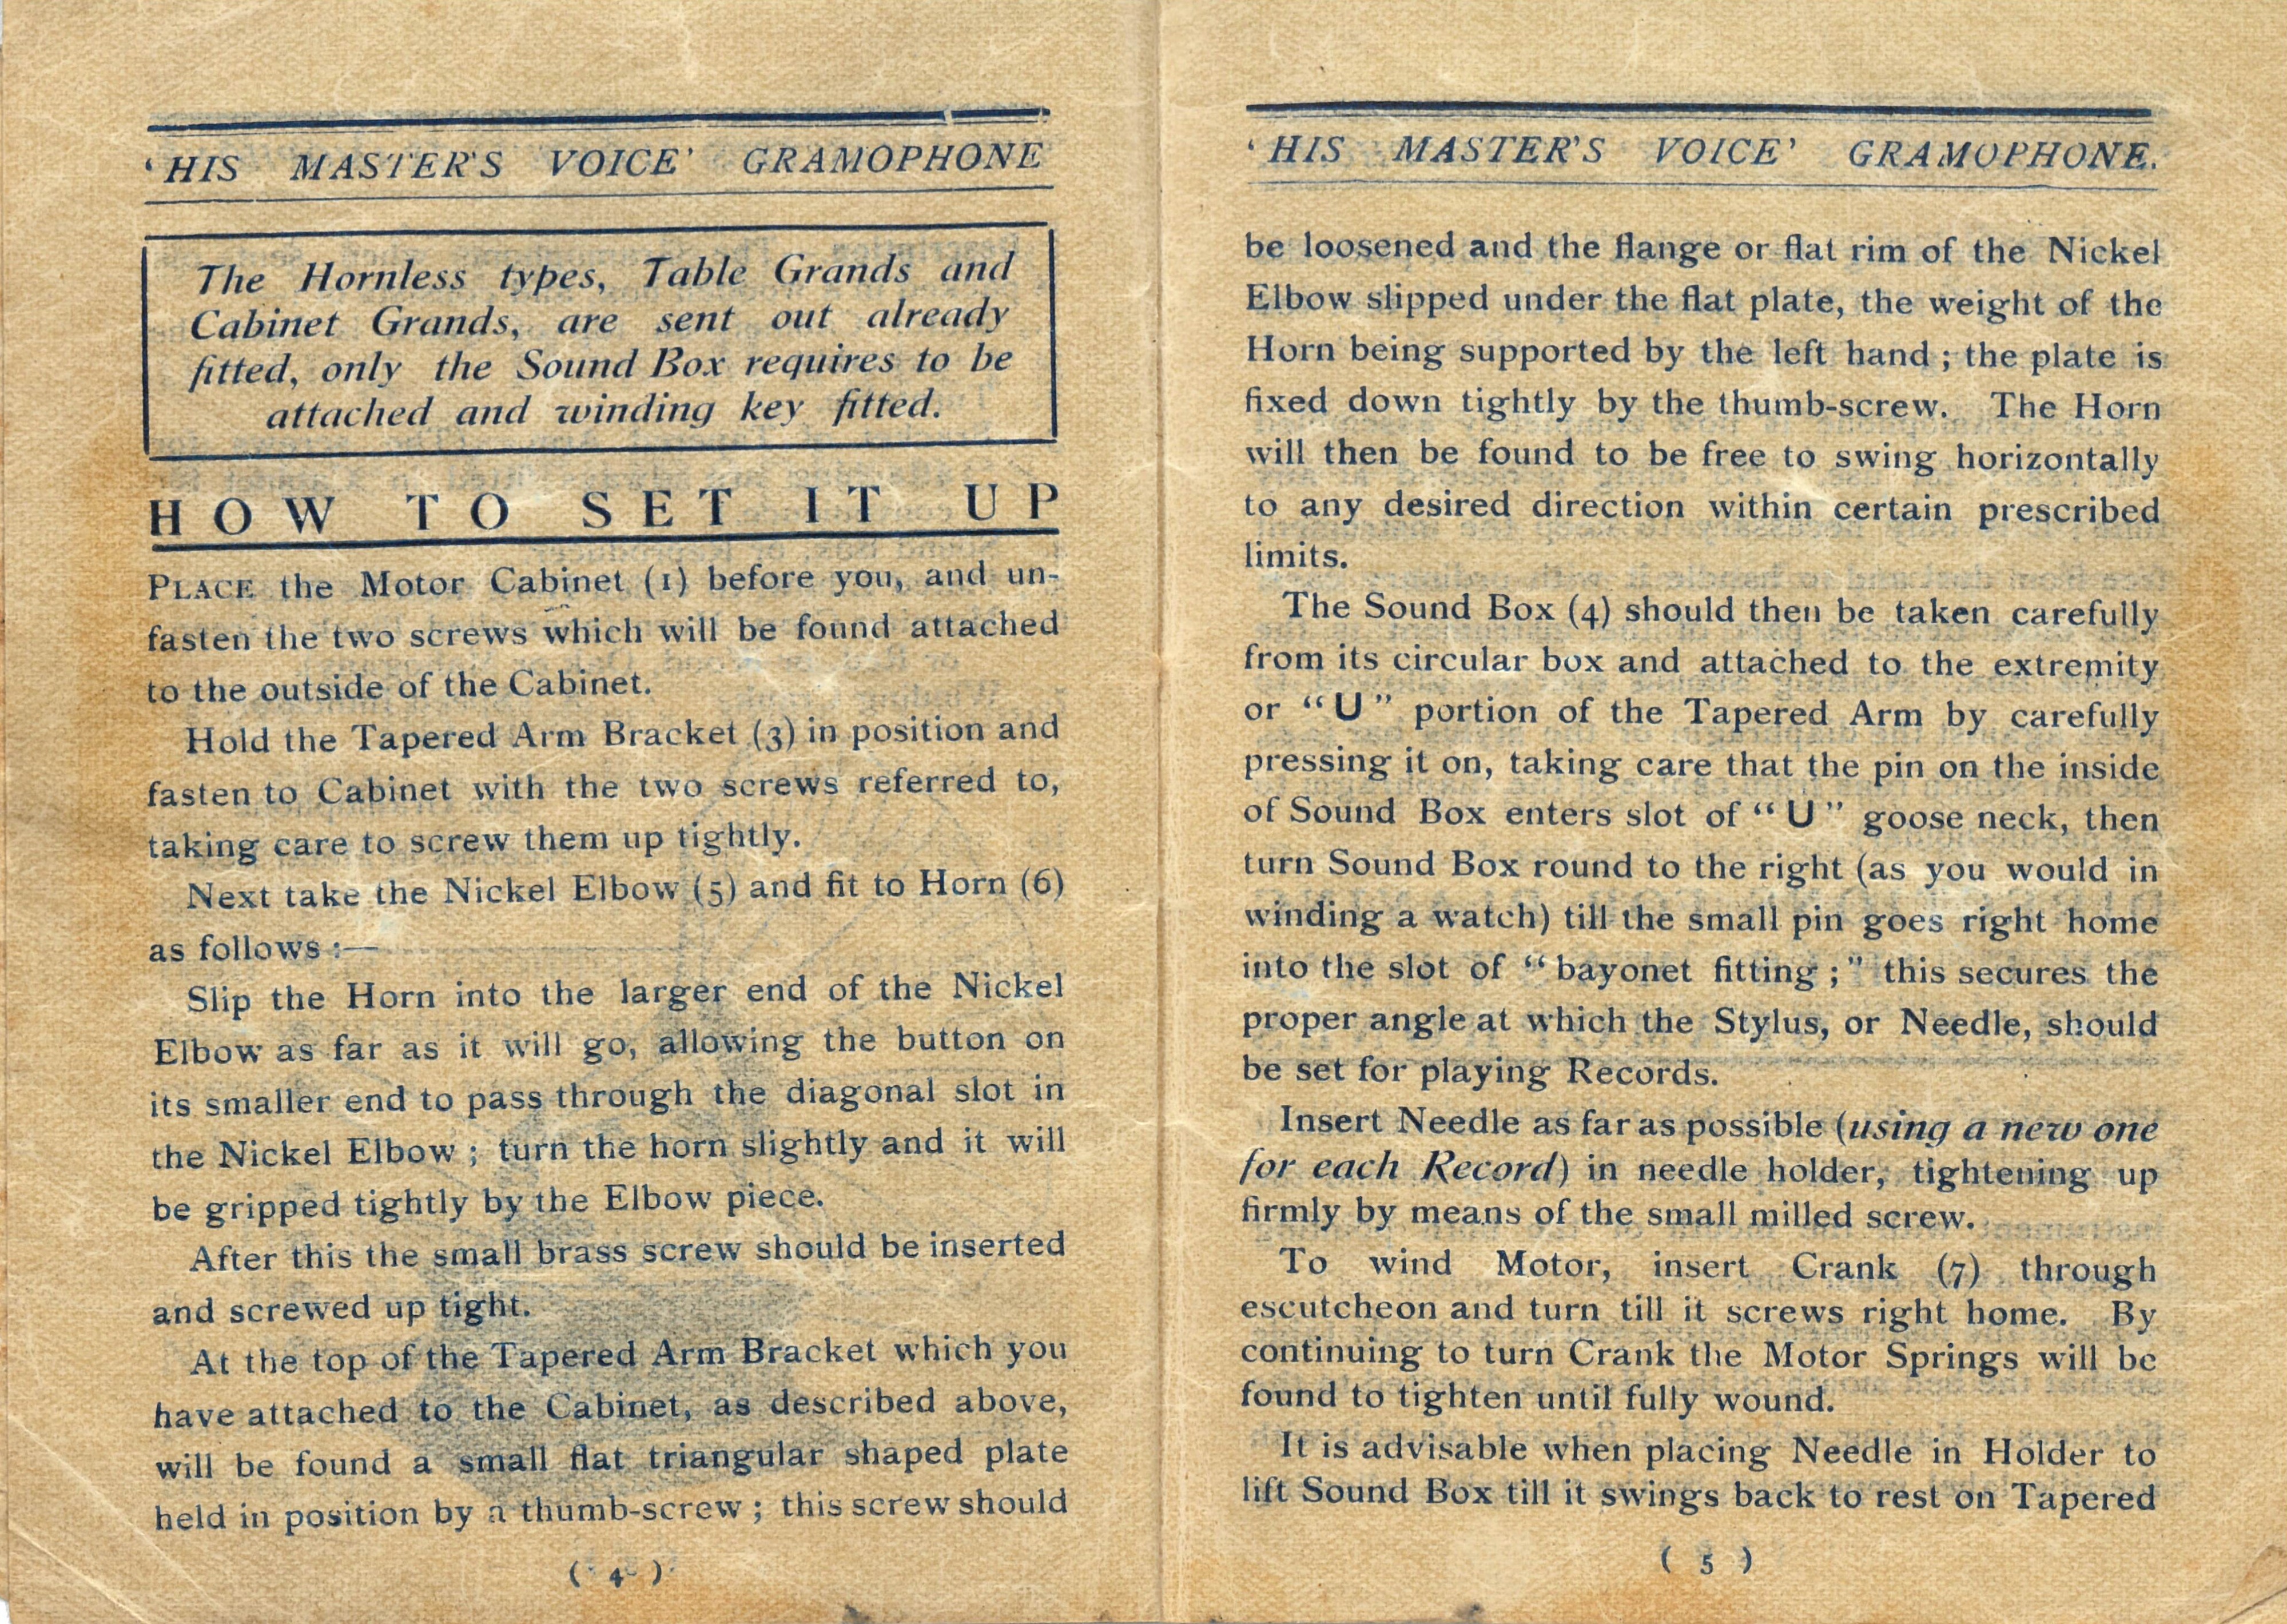 ‘HIS MASTER'S VOICE’ GRAMOPHONE
The Hornless types, Table Grands and
Cabinet Grands, are sent out already
fitted, only the Sound Box requires to be
attached and winding key fitted.
HOW TO SET IT UP
PLACE the Motor Cabinet (1) before you, and un-
fasten the two screws which will be found attached
to the outside of the Cabinet.
Hold the Tapered Arm Bracket (3) in position and
fasten to Cabinet with the two screws referred to,
taking care to screw them up tightly.
Next take the Nickel Elbow (5) and fit to Horn (6)
as follows :—
Slip the Horn into the larger end of the Nickel
Elbow as far as it will go, allowing the button on
its smaller end to pass through the diagonal slot in
the Nickel Elbow ; turn the horn slightly and it will
be gripped tightly by the Elbow piece.
After this the small brass screw should be inserted
and screwed up tight.
At the top of the Tapered Arm Bracket which you
have attached to the Cabinet, as described above,
will be found a small flat triangular shaped plate
held in position by a thumb-screw ; this screw should
( 4 )
‘HIS MASTER'S VOICE’ GRAMOPHONE.
be loosened and the flange or flat rim of the Nickel
Elbow slipped under the flat plate, the weight of the
Horn being supported by the left hand ; the plate is
fixed down tightly by the thumb-screw. The Horn
will then be found to be free to swing horizontally
to any desired direction within certain prescribed
limits.
The Sound Box (4) should then be taken carefully
from its circular box and attached to the extremity
or “U” portion of the Tapered Arm by carefully
pressing it on, taking care that the pin on the inside
of Sound Box enters slot of “U” goose neck, then
turn Sound Box round to the right (as you would in
winding a watch) till the small pin goes right home
into the slot of “bayonet fitting ;” this secures the
proper angle at which the Stylus, or Needle, should
be set for playing Records.
Insert Needle as far as possible (using a new one
for each Record) in needle holder, tightening up
firmly by means of the small milled screw.
To wind Motor, insert Crank (7) through
escutcheon and turn till it screws right home. By
continuing to turn Crank the Motor Springs will be
found to tighten until fully wound.
It is advisable when placing Needle in Holder to
lift Sound Box till it swings back to rest on Tapered
( 5 )